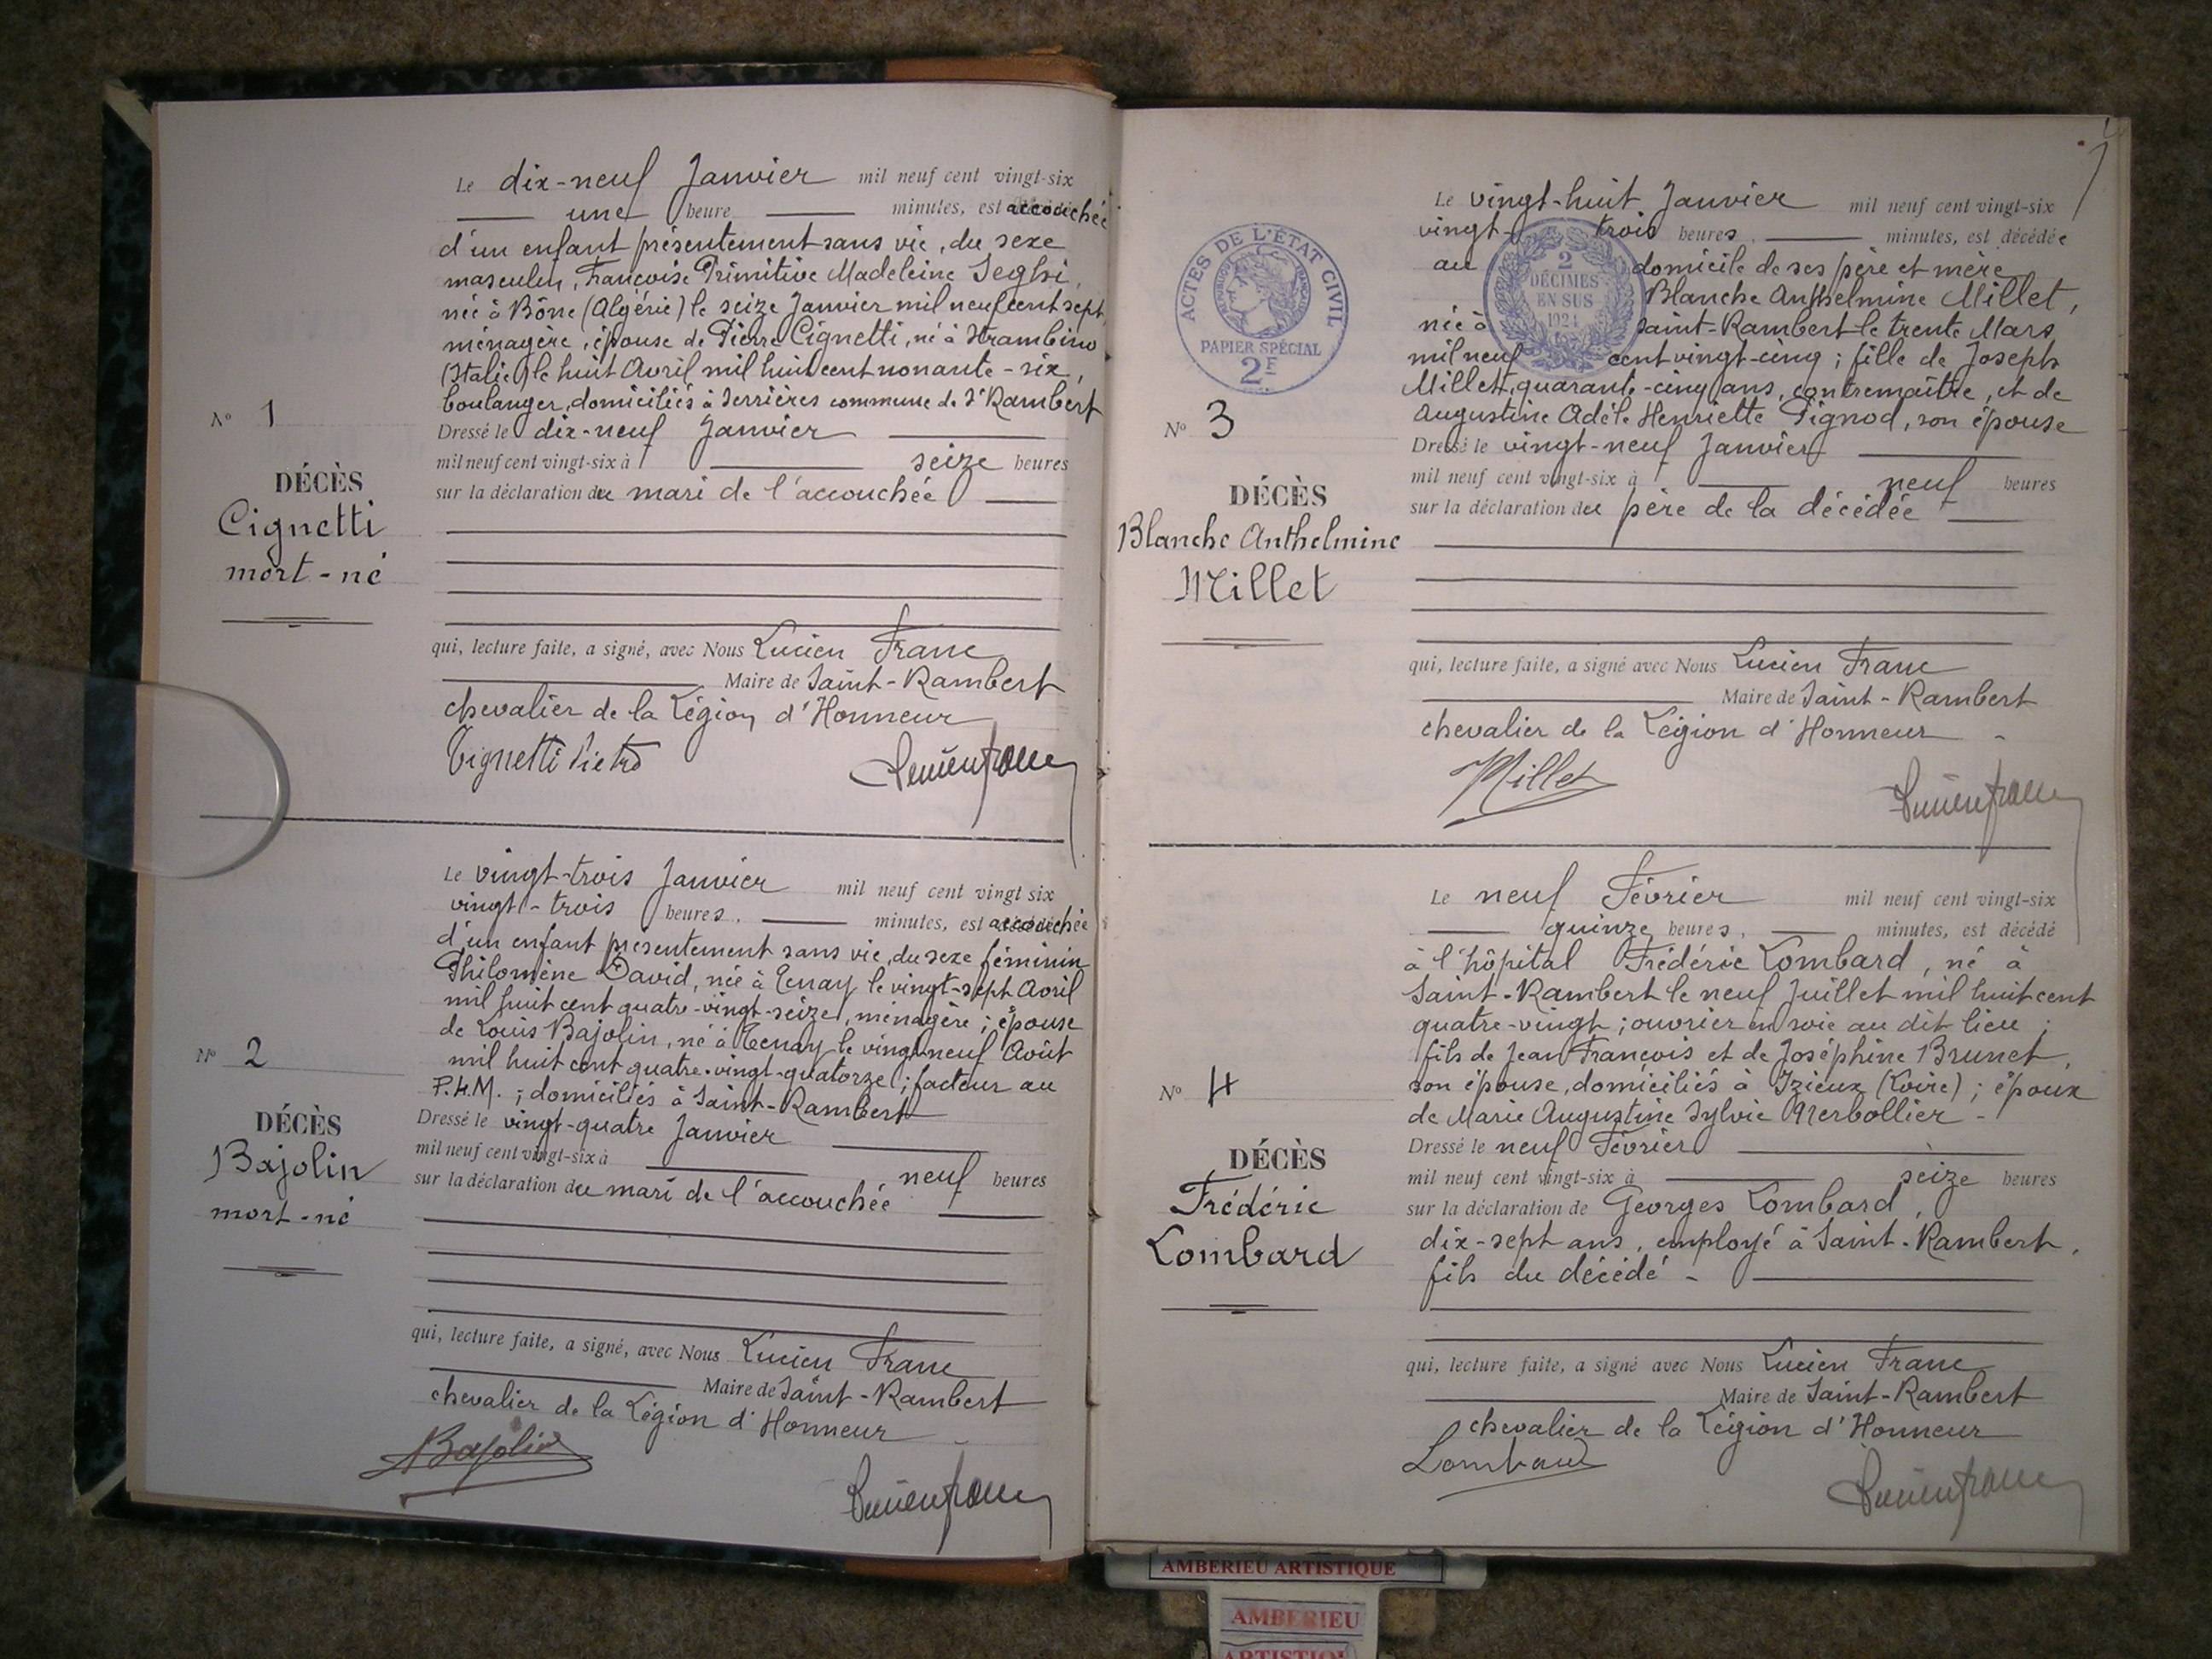 Le dix-neuf Janvier mil neuf cent vingt-six
une heure minutes, est accouchée
d'un enfant présentement sans vie, du sexe
masculin, Françoise Primitive Madeleine Seghi,
née à Bône (Algérie) le seize Janvier mil neuf cent sept,
ménagère, épouse de Pierre Cignetti, né à Strambino
(Italie) le huit Avril mil huit cent nonante-six,
boulanger, domiciliés à Serrières commune de St Rambert
Nº 1
Dressé le dix-neuf Janvier
mil neuf cent vingt-six à seize heures
DÉCÈS
sur la déclaration du mari de l'accouchée
Cignetti
mort-né
qui, lecture faite, a signé, avec Nous Lucien Franc
Maire de Saint-Rambert
chevalier de la Légion d'Honneur
Cignetti Pietro
Lucien franc
Le vingt-trois Janvier mil neuf cent vingt six
vingt-trois heures, minutes, est accouchée
d'un enfant présentement sans vie, du sexe féminin
Philomène David, née à Tenay le vingt-sept Avril
mil huit cent quatre-vingt-seize, ménagère ; épouse
de Louis Bajolin, né à Tenay le vingt-neuf Août
mil huit cent quatre-vingt-quatorze ; facteur au
P.L.M. ; domiciliés à Saint-Rambert
Nº 2
Dressé le vingt-quatre Janvier
mil neuf cent vingt-six à neuf heures
DÉCÈS
sur la déclaration du mari de l'accouchée
Bajolin
mort-né
qui, lecture faite, a signé, avec Nous Lucien Franc
Maire de Saint-Rambert
chevalier de la Légion d'Honneur
Bajolin
Lucien franc
ACTES DE L'ÉTAT CIVIL
RÉPUBLIQUE FRANÇAISE
PAPIER SPÉCIAL
2F
2
DÉCIMES
EN SUS
1924
Le vingt-huit Janvier mil neuf cent vingt-six
vingt-trois heures, minutes, est décédée
au domicile de ses père et mère
Blanche Anthelmine Millet,
née à Saint-Rambert le trente Mars
mil neuf cent vingt-cinq ; fille de Joseph
Millet, quarante-cinq ans, contremaître, et de
Augustine Adèle Henriette Pignod, son épouse
Nº 3
Dressé le vingt-neuf Janvier
mil neuf cent vingt-six à neuf heures
DÉCÈS
sur la déclaration du père de la décédée
Blanche Anthelmine
Millet
qui, lecture faite, a signé avec Nous Lucien Franc
Maire de Saint-Rambert
chevalier de la Légion d'Honneur
Millet
Lucien franc
Le neuf Février mil neuf cent vingt-six
quinze heures, minutes, est décédé
à l'hôpital Frédéric Lombard, né à
Saint-Rambert le neuf Juillet mil huit cent
quatre-vingt ; ouvrier en soie au dit lieu ;
fils de Jean François et de Joséphine Brunet,
son épouse, domiciliés à Izieux (Loire) ; époux
de Marie Augustine Sylvie Merbollier -
Nº 4
Dressé le neuf Février
mil neuf cent vingt-six à seize heures
DÉCÈS
sur la déclaration de Georges Lombard,
Frédéric
Lombard
dix-sept ans, employé à Saint-Rambert,
fils du décédé -
qui, lecture faite, a signé avec Nous Lucien Franc
Maire de Saint-Rambert
chevalier de la Légion d'Honneur
Lombard
Lucien franc
AMBERIEU ARTISTIQUE
AMBERIEU
ARTISTIQUE